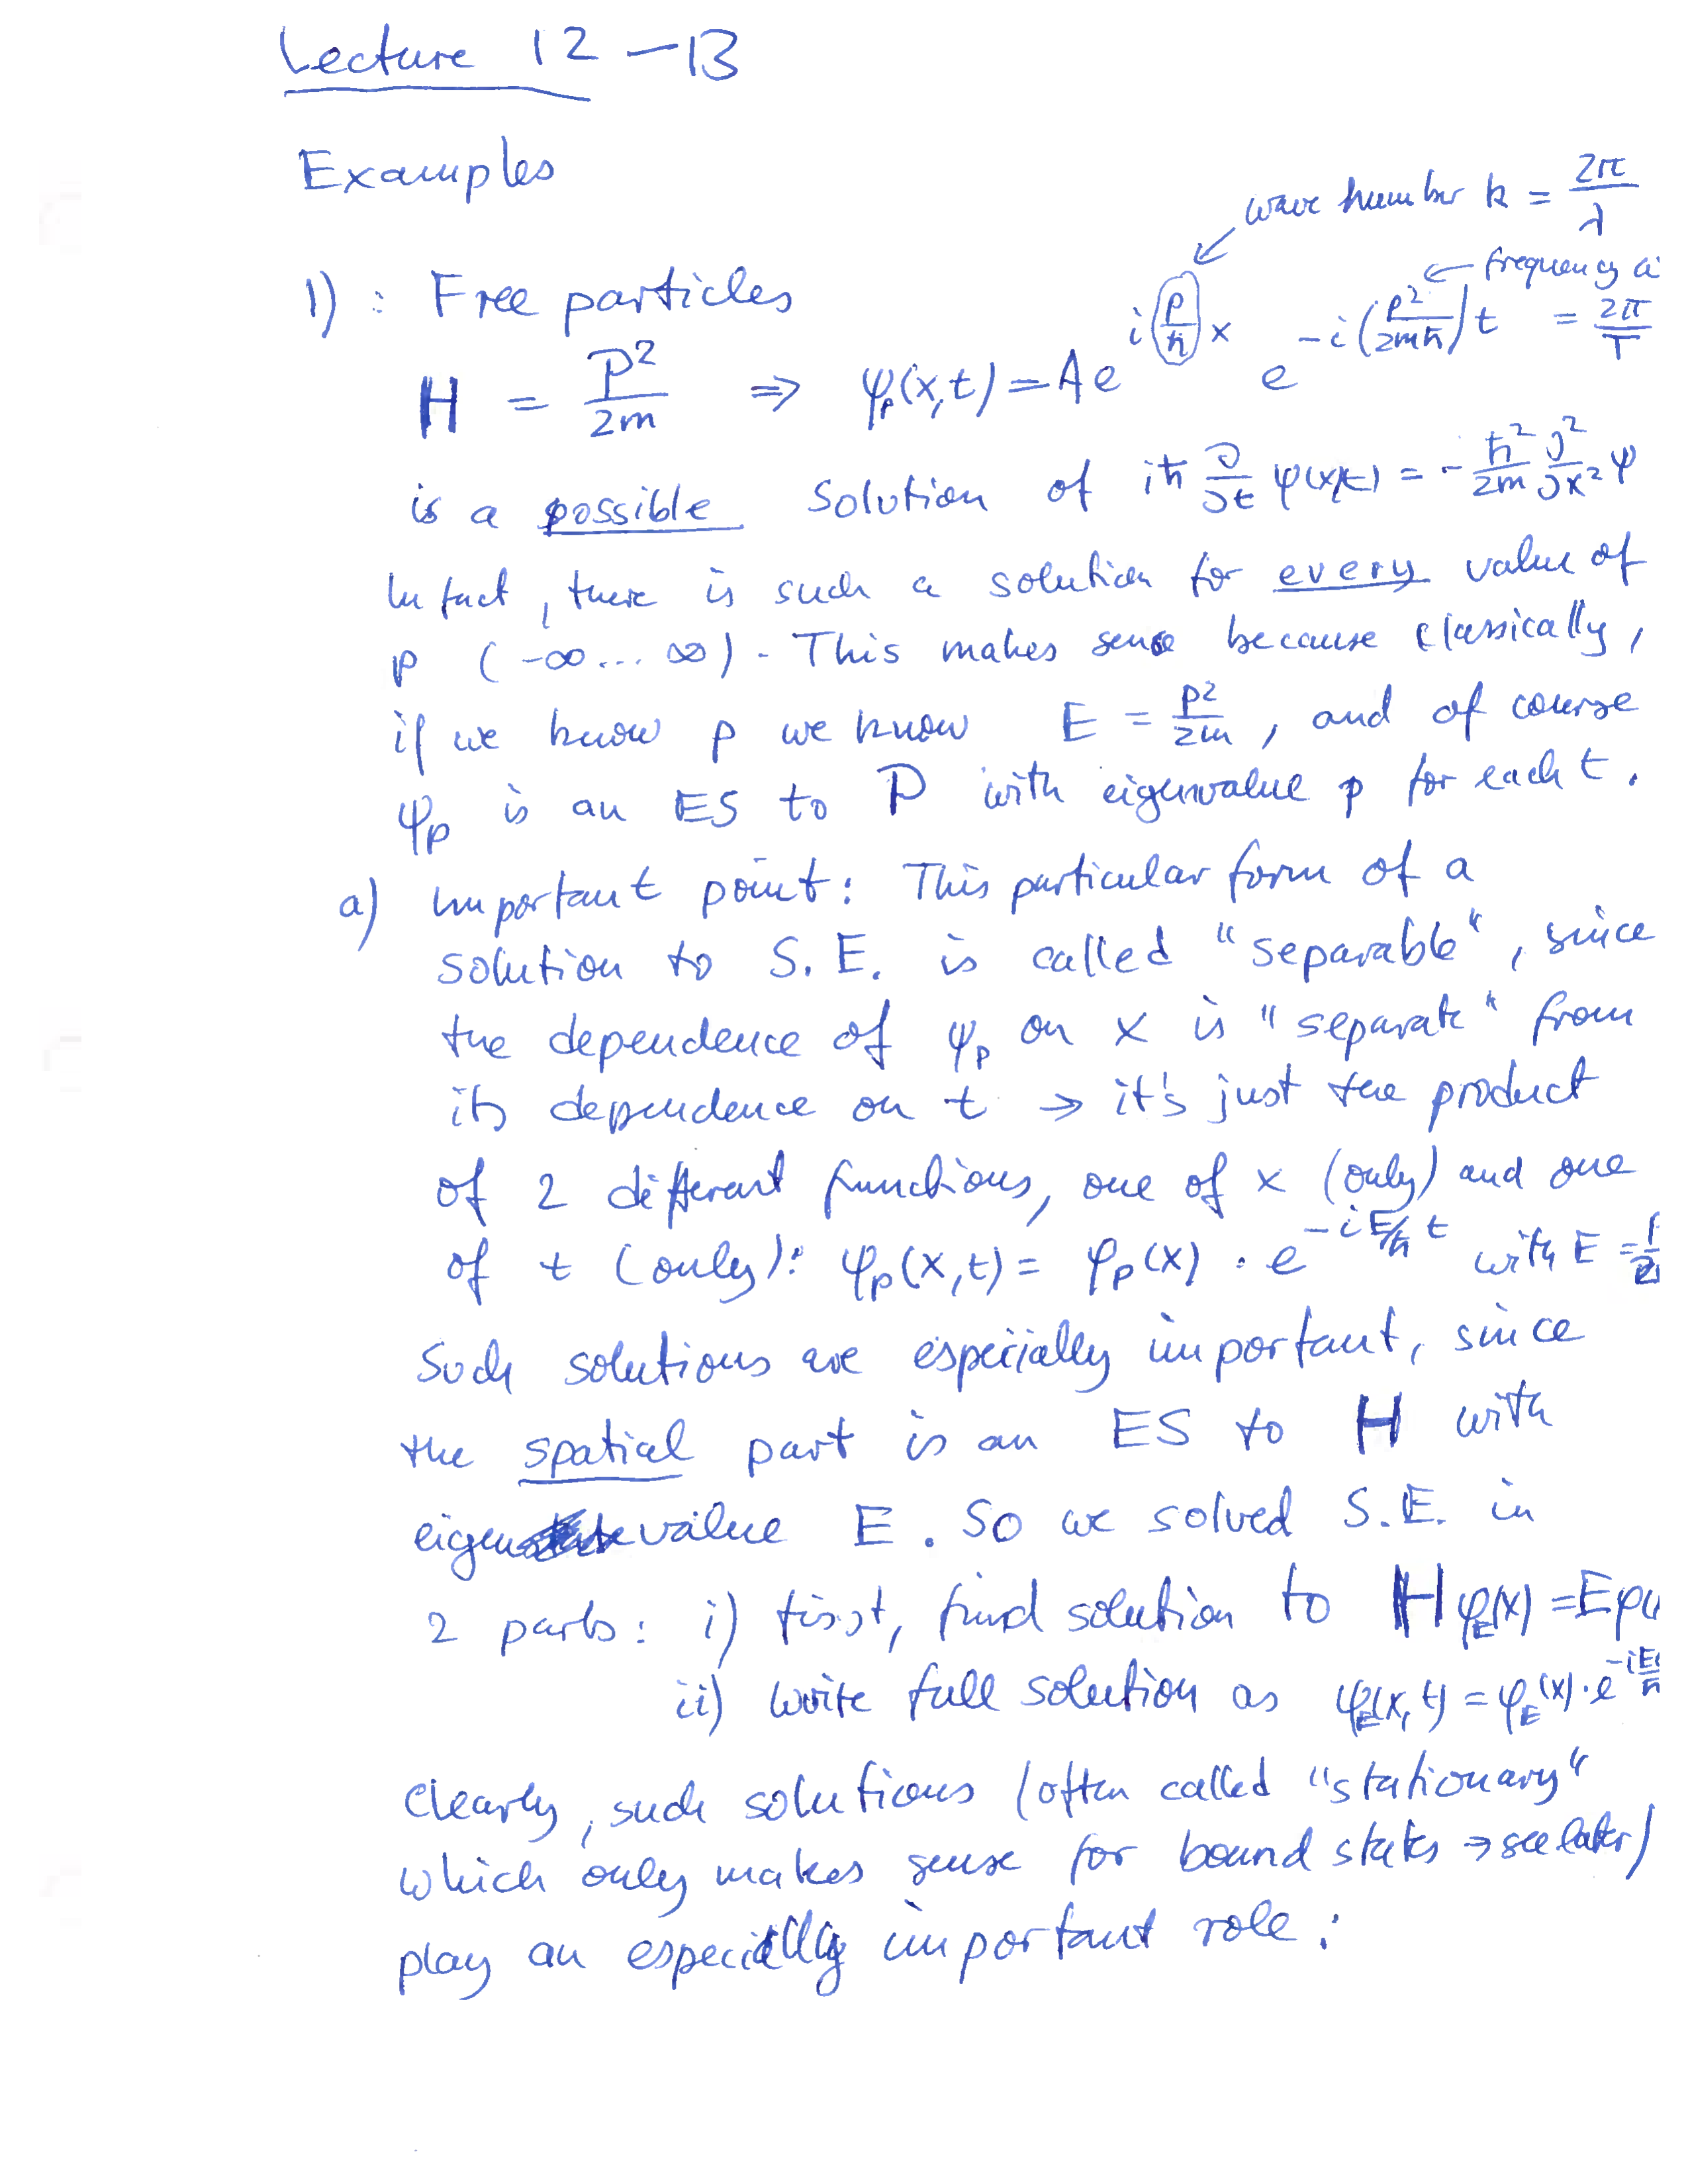 Lecture 12 – 13
Examples
wave number k = 2π/λ
1) : Free particles
← frequency
H = P²/2m ⇒ ψ_p(x,t) = A e^{i(p/ħ)x} e^{-i(p²/2mħ)t} = 2π/T
is a possible solution of iħ ∂/∂t ψ(x,t) = - ħ²/2m ∂²/∂x² ψ
In fact, there is such a solution for every value of
p (-∞...∞). This makes sense because classically,
if we know p we know E = p²/2m, and of course
ψ_p is an ES to P with eigenvalue p for each t.
a) Important point: This particular form of a
solution to S.E. is called "separable", since
the dependence of ψ_p on x is "separate" from
its dependence on t → it's just the product
of 2 different functions, one of x (only) and one
of t (only): ψ_p(x,t) = φ_p(x) · e^{-iE/ħ t} with E = 1/2
Such solutions are especially important, since
the spatial part is an ES to H with
eigenvalue E. So we solved S.E. in
2 parts: i) first, find solution to H φ_E(x) = Eφ(
ii) write full solution as ψ_E(x,t) = φ_E(x)·e^{-iE/ħ
Clearly, such solutions (often called "stationary"
which only makes sense for bound states → see later)
play an especially important role: